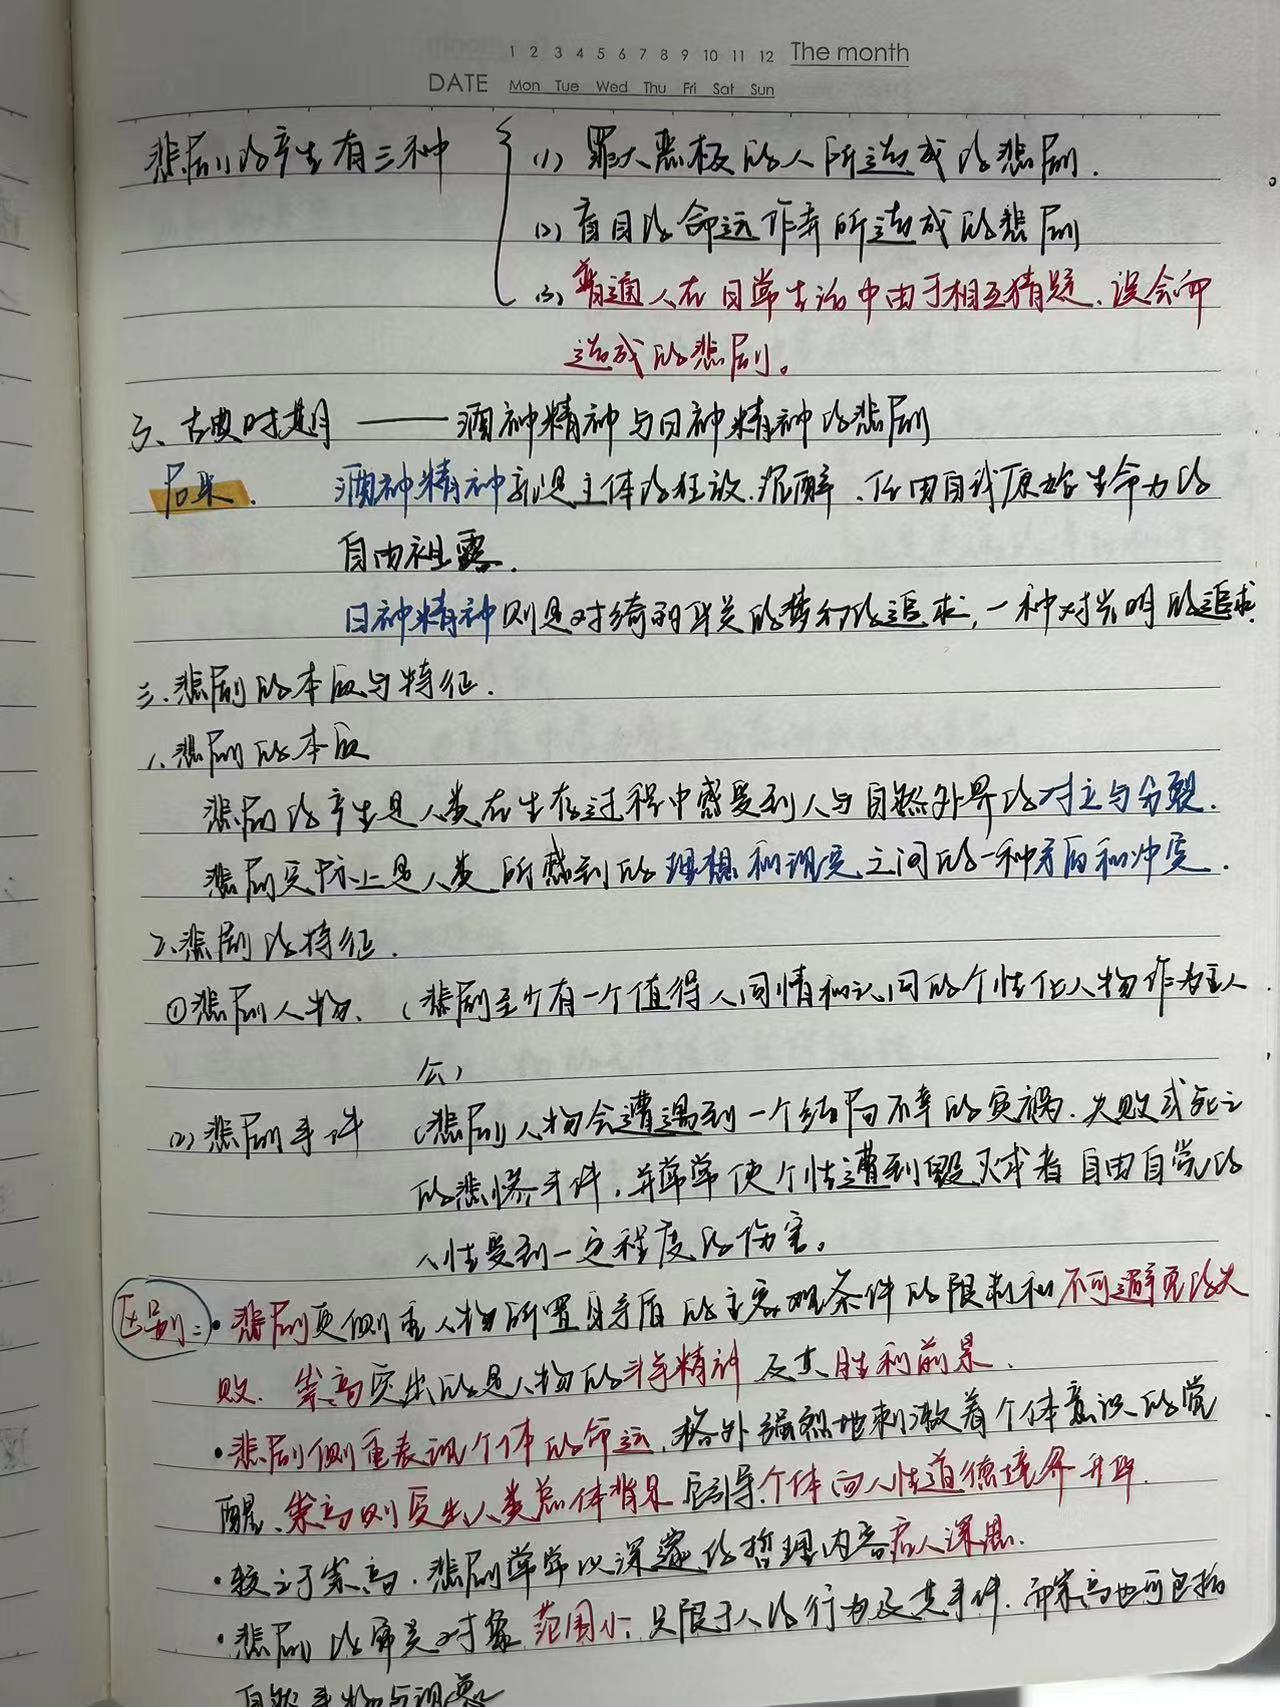 1 2 3 4 5 6 7 8 9 10 11 12 The month
DATE Mon Tue Wed Thu Fri Sat Sun
悲剧的产生有三种 (1) 罪大恶极的人所造成的悲剧.
(2) 盲目的命运作弄所造成的悲剧
(3) 普通人在日常生活中由于相互猜疑、误会而
造成的悲剧。
古典时期 —— 酒神精神与日神精神的悲剧
尼采. 酒神精神就是主体的狂放、沉醉、任由自我原始生命力的
自由袒露.
日神精神则是对绮丽的梦幻的追求, 一种对光明的追求.
三.悲剧的本质与特征.
1.悲剧的本质
悲剧的产生是人类在生存过程中感受到人与自然外界的对立与分裂.
悲剧实际上是人类所感到的理想和现实之间的一种矛盾和冲突.
2.悲剧的特征.
①悲剧人物. (悲剧至少有一个值得人同情和认同的个性化人物作为主人
公)
(2) 悲剧事件 (悲剧人物会遭遇到一个结局不幸的灾祸、失败或死亡
的悲惨事件, 并常常使个性遭到毁灭或者自由自觉的
人性受到一定程度的伤害。
区别: ·悲剧更侧重人物所置身矛盾的主客观条件的限制和不可避免的失
败. 崇高突出的是人物的斗争精神及其胜利前景.
·悲剧侧重表现个体的命运, 格外强烈地刺激着个体意识的觉
醒、崇高则突出人类总体背景 引导个体向人性道德境界升华.
·较之于崇高, 悲剧常常以深邃的哲理内容启人深思.
·悲剧的审美对象范围小: 只限于人的行为及其事件. 而崇高也可包括
自然事物与现象